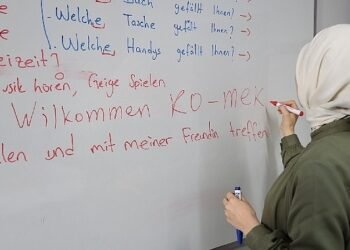 Welche Buch gefällt Ihnen?
Welche Tasche gefällt Ihnen? →
Welche Handys gefällt Ihnen? →
eizeit?
usik hören, Geige Spielen
Willkommen KO-MEK
len und mit meiner Freundin treffen